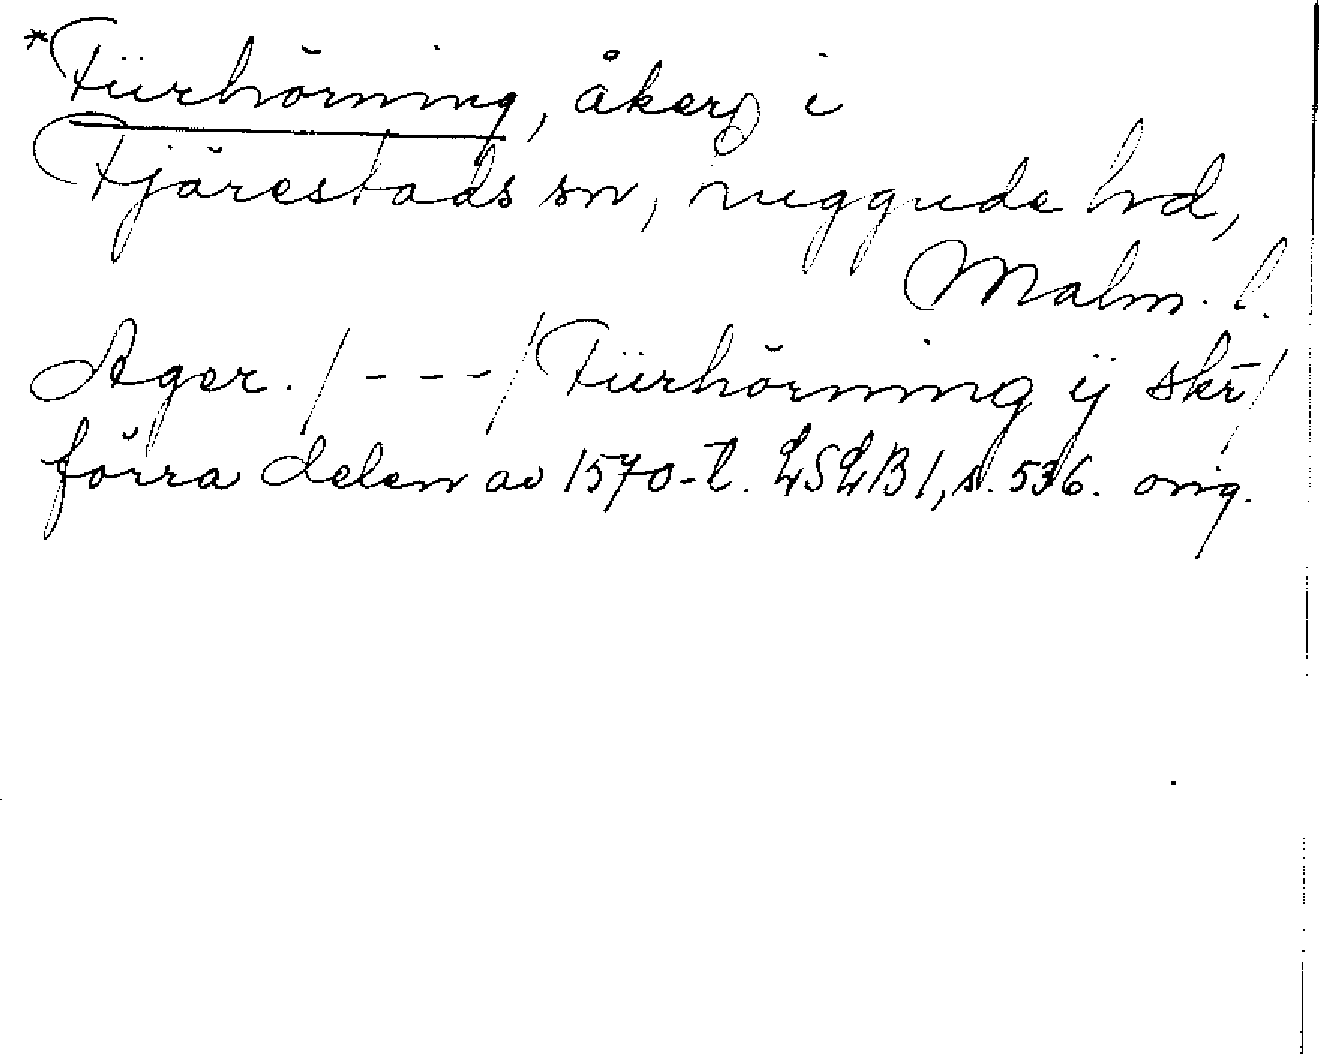 *Fiirhörning, åkerβ i
Fjärestads sn, Luggude hd,
Malm. l.
Ager. /---/ Fiirhörning ij skr̄ /
förra delen av 1570-t. LSLB1, s. 536. orig.